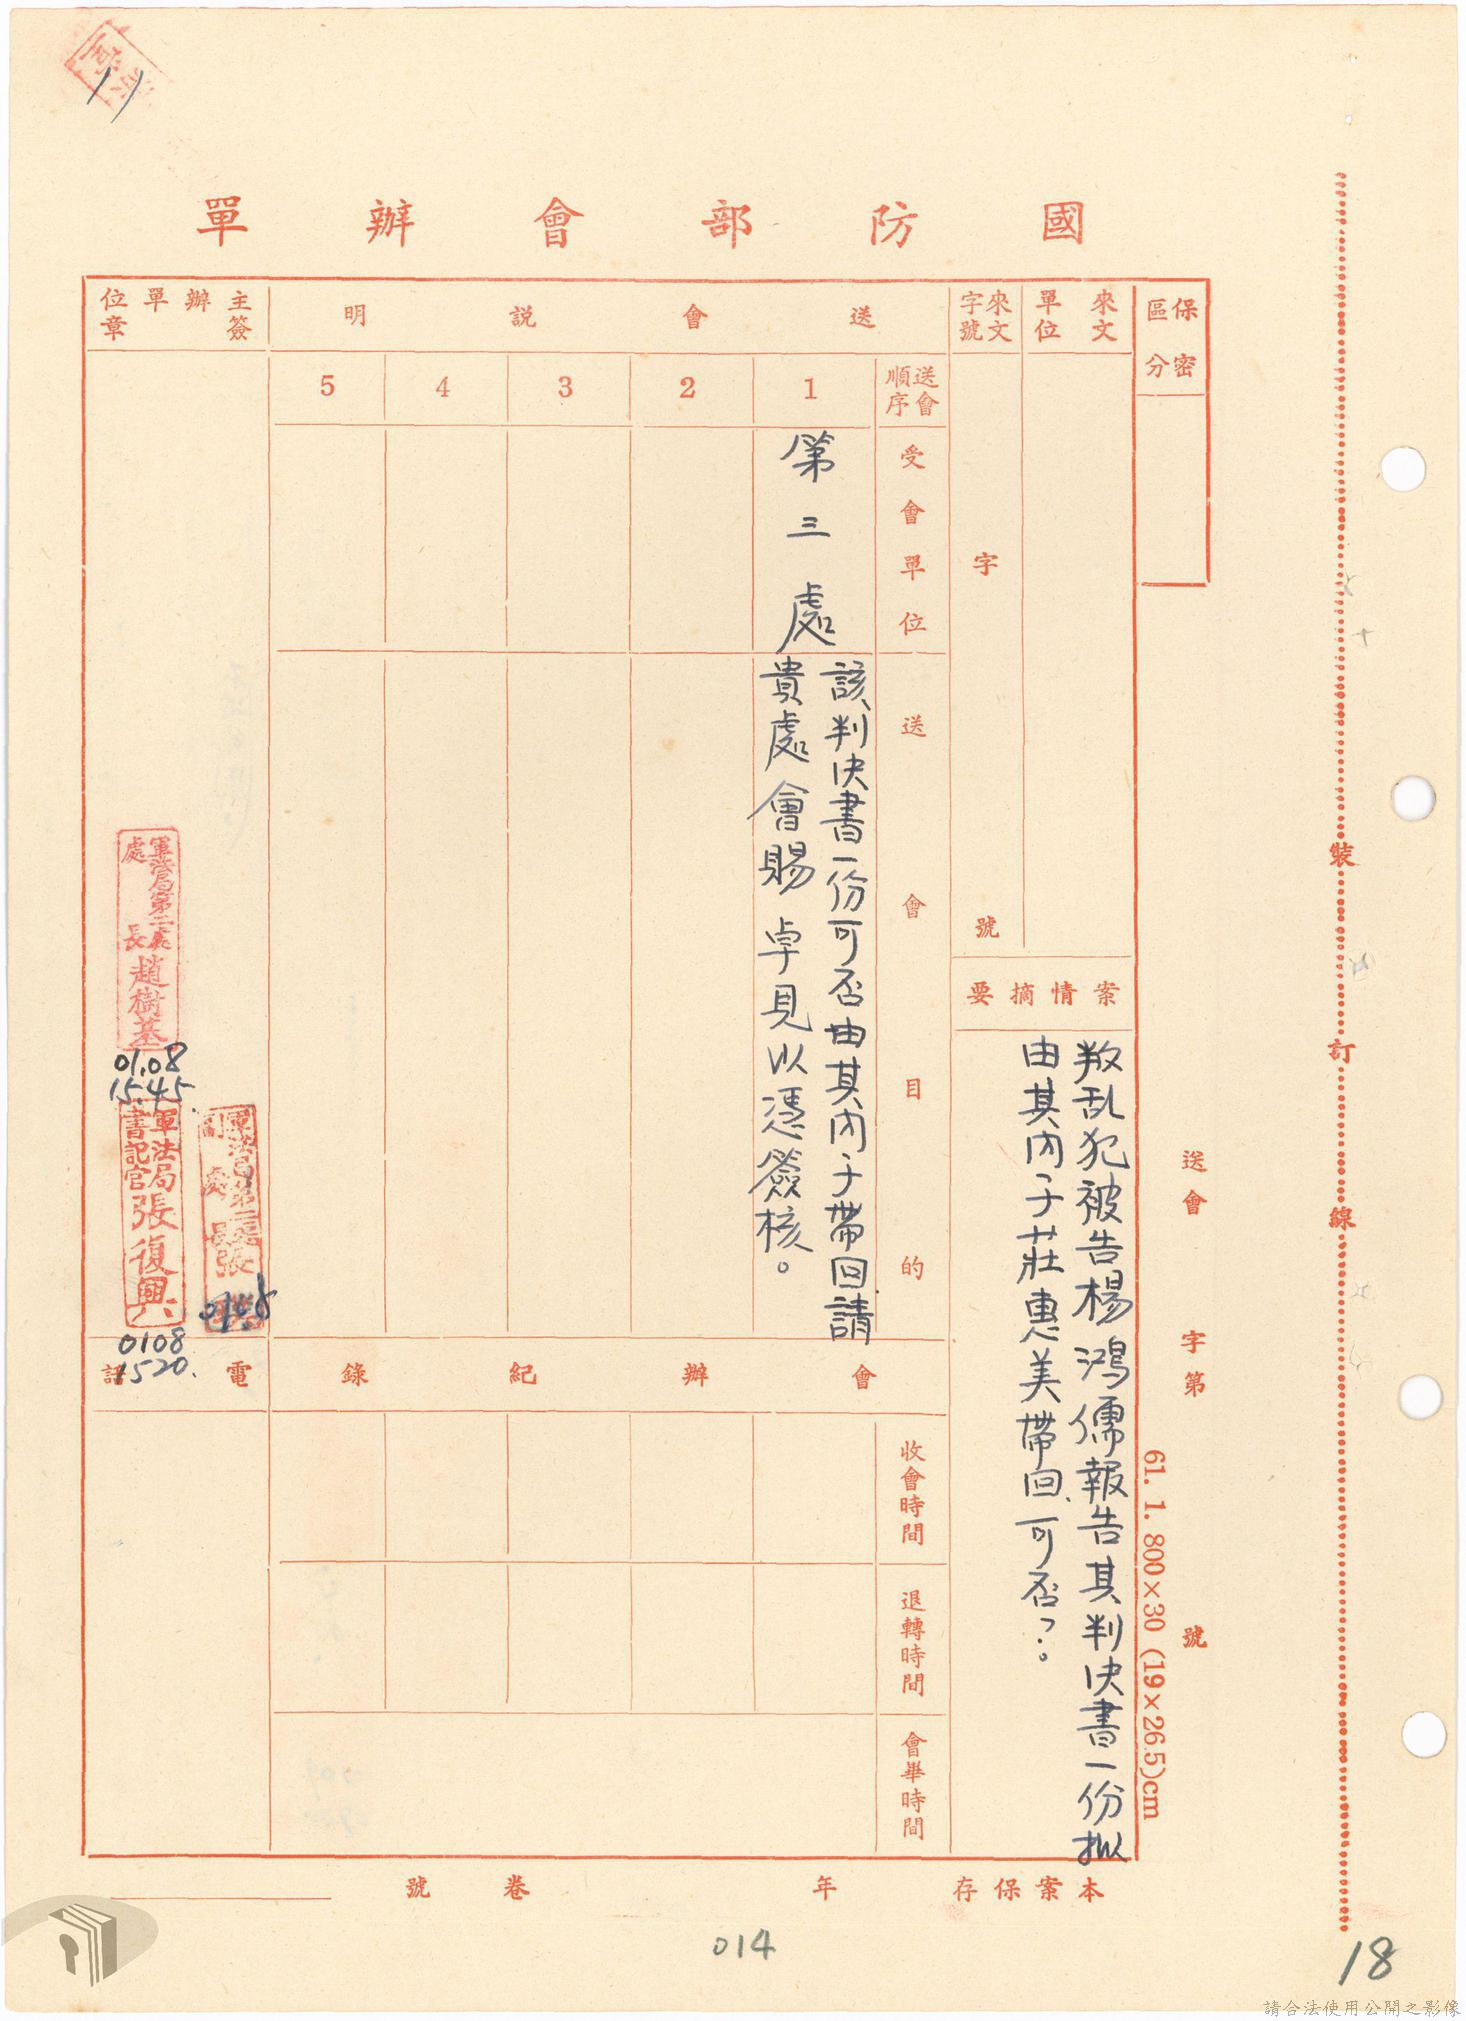 11
國防部會辦單
保密區分
來文單位
來文字號
字
號
案情摘要
叛乱犯被告楊鴻儒報告其判决書一份拟
由其內子莊惠美帶回可否？。
送會說明
送會順序
1
2
3
4
5
受會單位
第三處
送會目的
該判决書一份可否由其內子帶回請
貴處會賜卓見以憑簽核。
會辦紀錄
收會時間
退轉時間
會畢時間
主辦單位簽章
軍法局第二處
處長趙樹基
01.08
15.45
軍法局第二處
副處長張
0108
軍法局
書記官張復興
0108
1520.
電話
送會
字第
號
61. 1. 800×30 (19×26.5)cm
裝
訂
線
本案保存 年 卷 號
014
18
請合法使用公開之影像